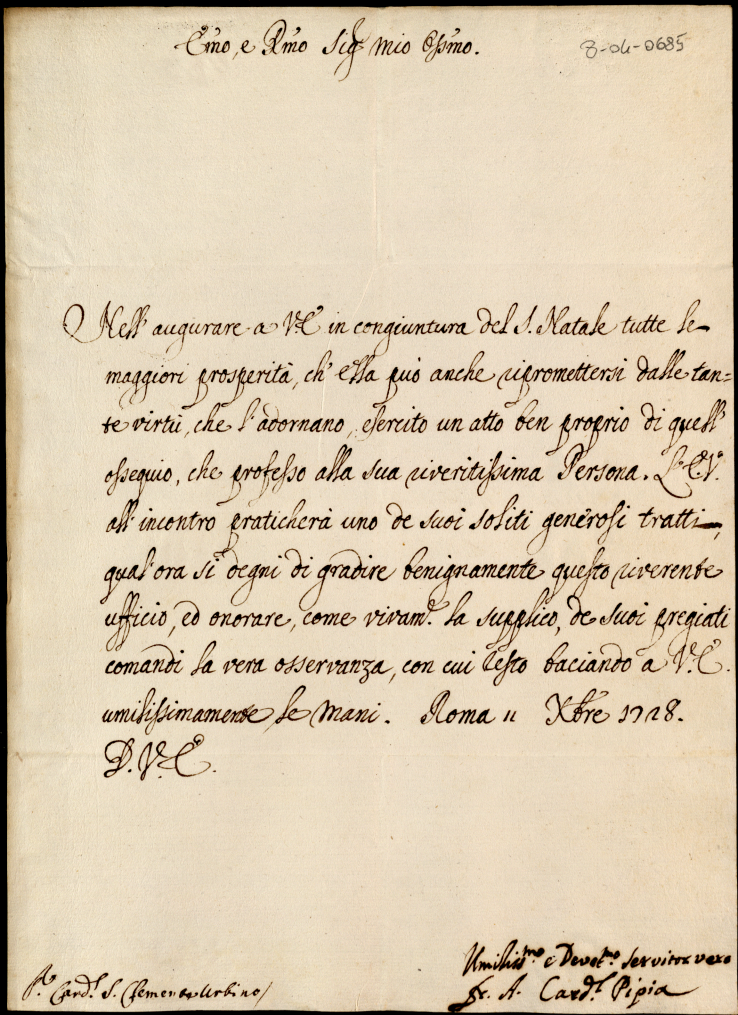 Emo, e Rmo Sig.r mio Ossmo.
8-04-0685
Nell' augurare a V.E. in congiuntura del S. Natale tutte le
maggiori prosperità, ch' ella può anche ripromettersi dalle tan=
te virtù, che l'adornano, esercito un atto ben proprio di quell'
ossequio, che professo alla sua riveritissima Persona. L'E.V.
all' incontro praticherà uno de suoi soliti generosi tratti,
qual' ora si degni di gradire benignamente questo riverente
ufficio, ed onorare, come vivam.te la supplico, de suoi pregiati
comandi la vera osservanza, con cui resto baciando a V.E.
umilissimamente le mani. Roma 11 Xbre 1728.
D. V.E.
Umiliss.mo e Devot.mo Servitor vero
fr. A. Card.l Pipia
Card.l S. Clemente Urbino/